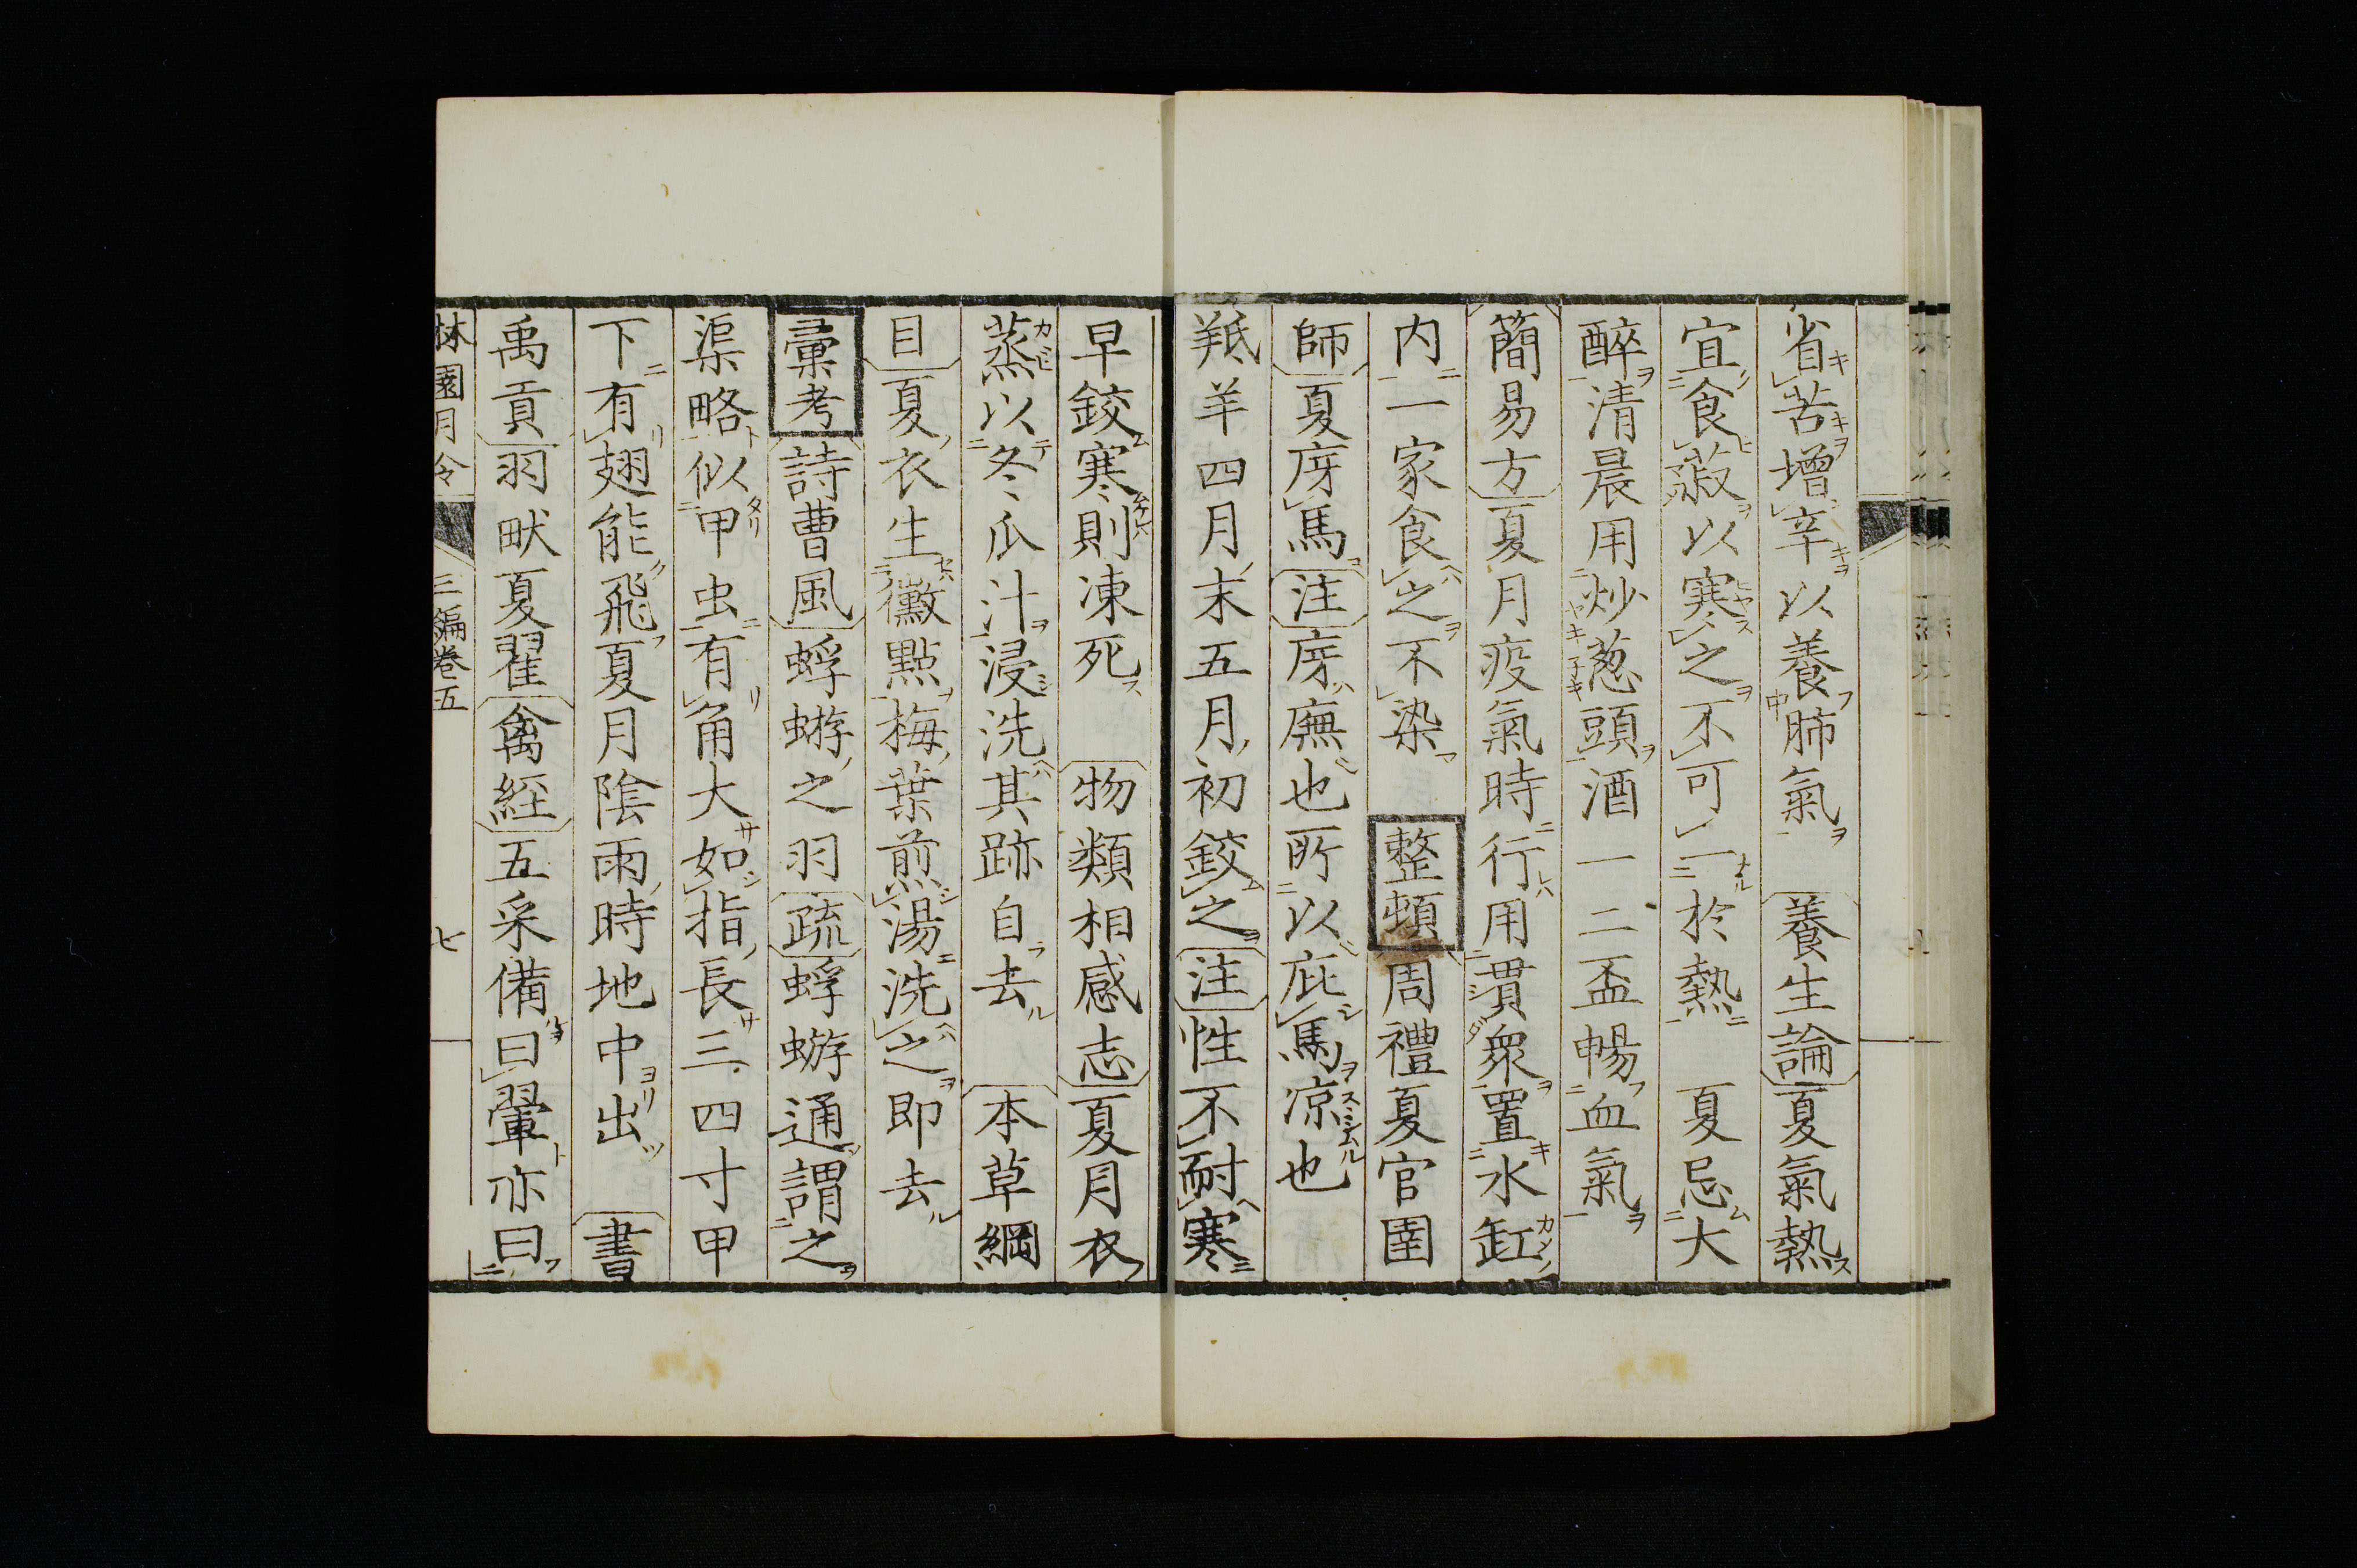 省苦增辛以養肺氣　養生論夏氣熱
宜食菽以寒之不可一於熱　夏忌大
醉清晨用炒葱頭酒一二盃暢血氣
簡易方夏月疫氣時行用貫衆置水缸
内一家食之不染　整頓周禮夏官圉
師夏庌馬注庌廡也所以庇馬凉也
羝羊四月末五月初鉸之注性不耐寒
早鉸寒則凍死　物類相感志夏月衣
蒸以冬瓜汁浸洗其跡自去　本草綱
目夏衣生黴點梅葉煎湯洗之即去
彙考詩曹風蜉蝣之羽疏蜉蝣通謂之
渠略似甲虫有角大如指長三四寸甲
下有翅能飛夏月陰雨時地中出　書
禹貢羽畎夏翟禽経五采備曰翬亦曰
林園月令　三編卷五　七